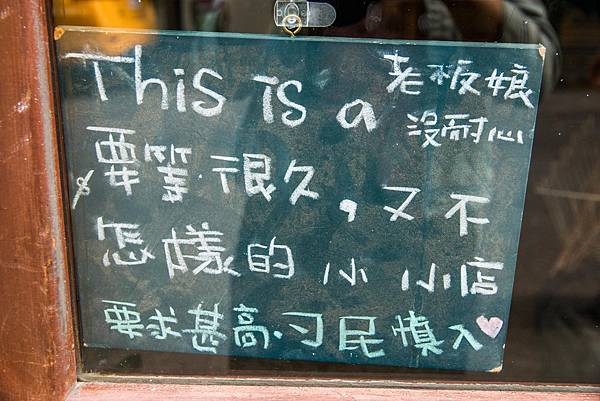 This is a 老板娘
沒耐心
要等很久，又不
怎樣的小小店
要求甚高．刁民慎入♥